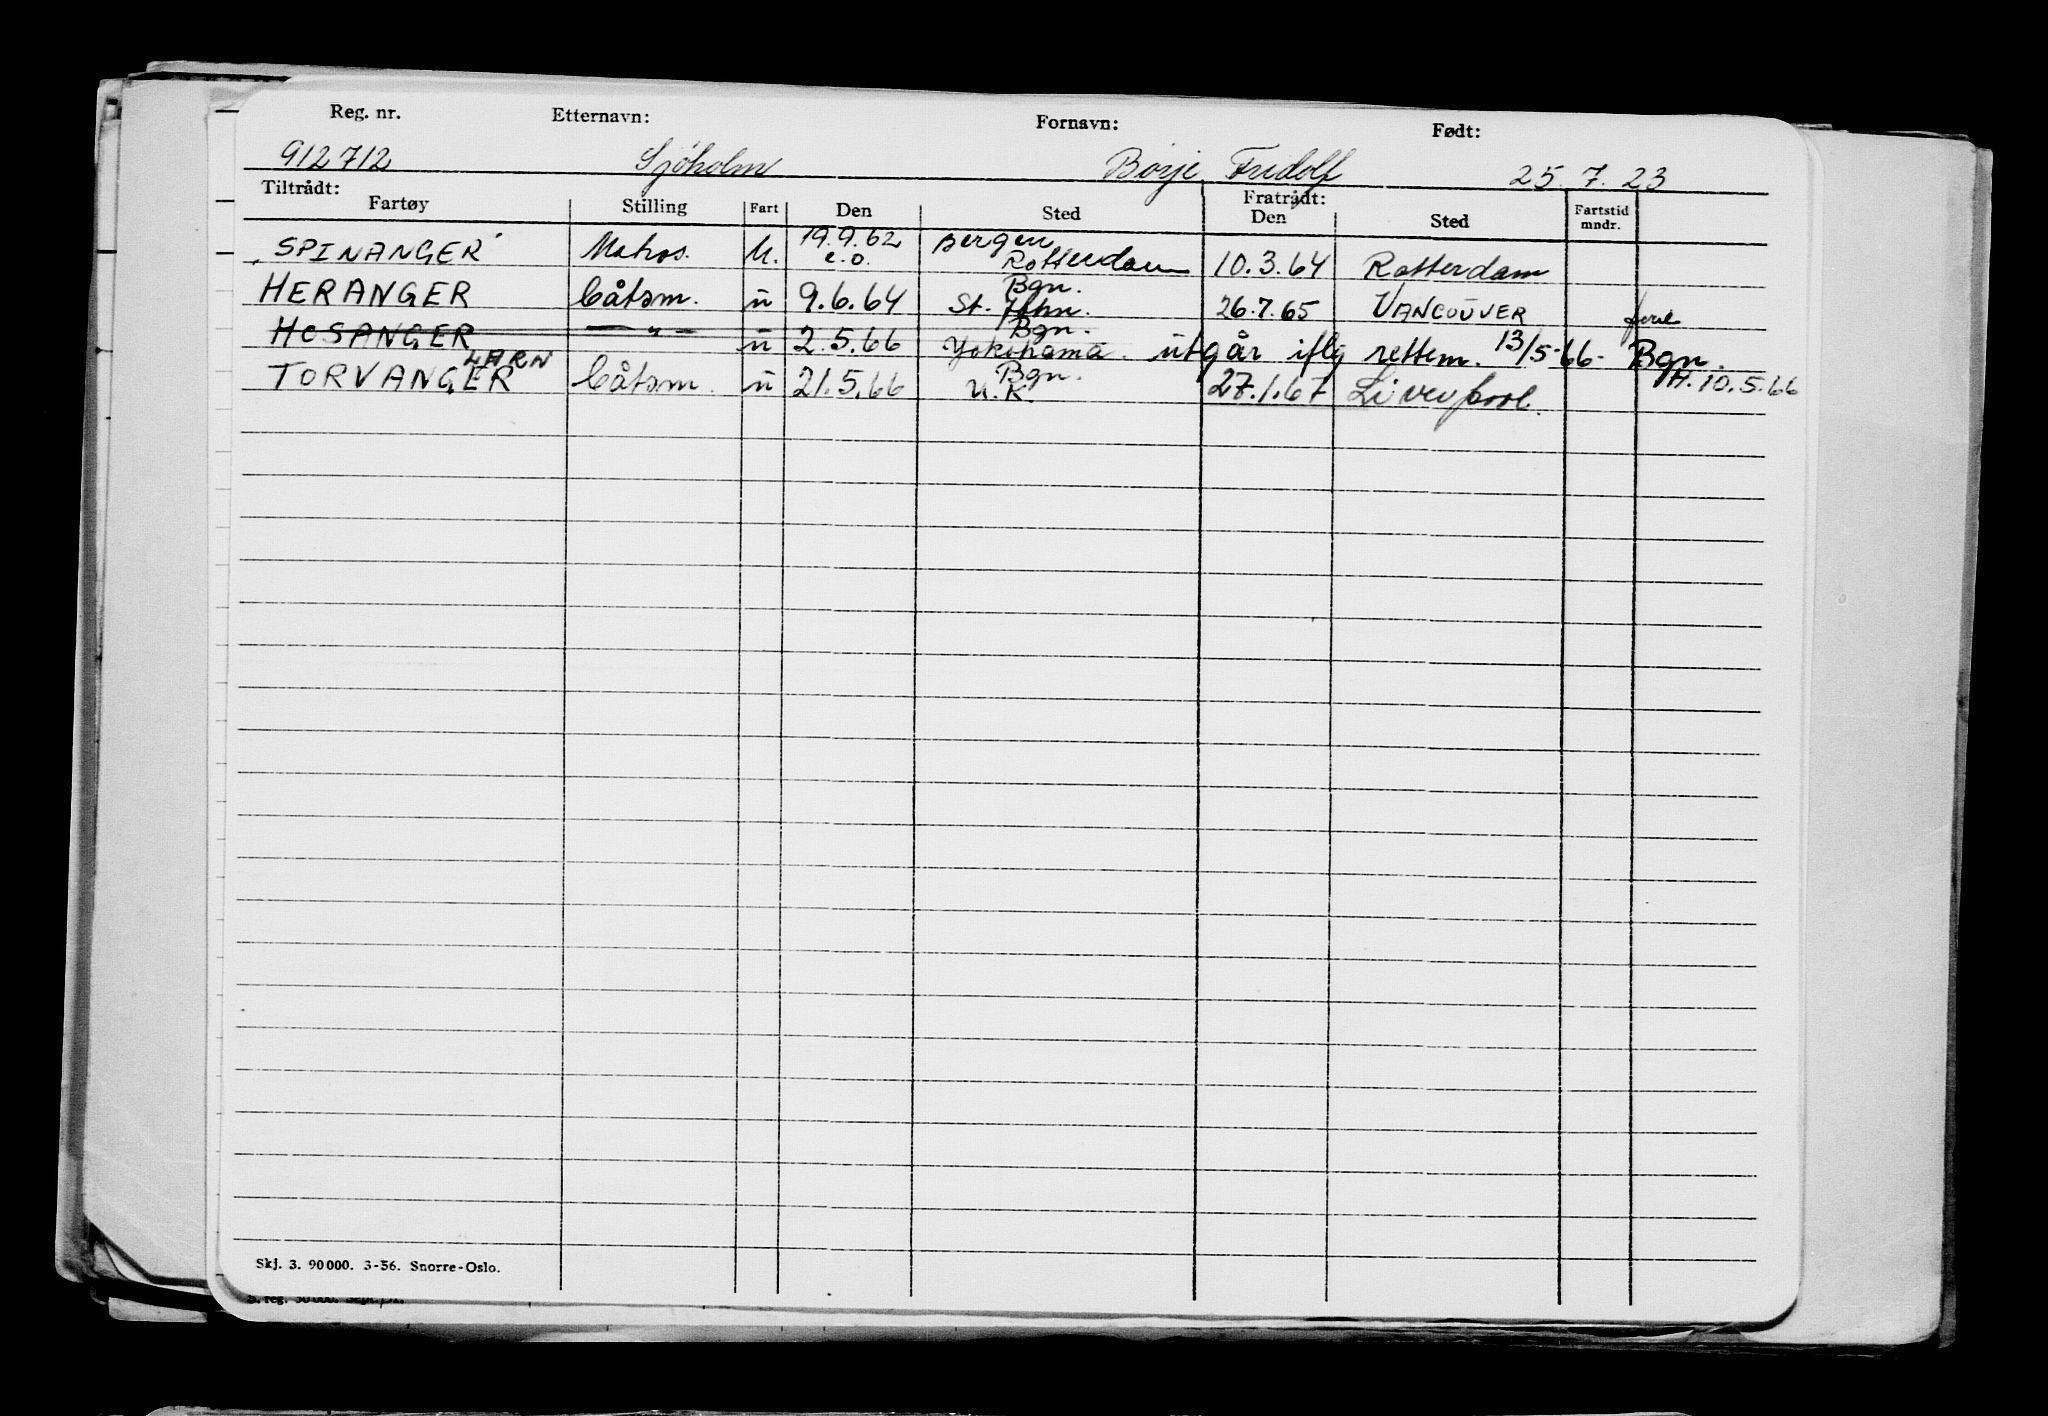 Reg. nr. Etternavn: Fornavn: Født:
912712 Sjöholm Börje Fridolf 25.7.23
Tiltrådt: Fratrådt:
Fartøy Stilling Fart Den Sted Den Sted Fartstid mndr.
"SPINANGER" Matros. U. 19.9.62 e.o. Bergen Rotterdam 10.3.64 Rotterdam
HERANGER båtsm. u 9.6.64 Bgn. St. John. 26.7.65 VANCOUVER
HOSANGER — " — u 2.5.66 Bgn. Yokohama. utgår iflg rettem. 13/5-66- Bgn.
TORVANGER båtsm. u 21.5.66 Bgn. U.K. 27.1.67 Liverpool. A. 10.5.66
Skj. 3. 90000. 3-56. Snorre-Oslo.